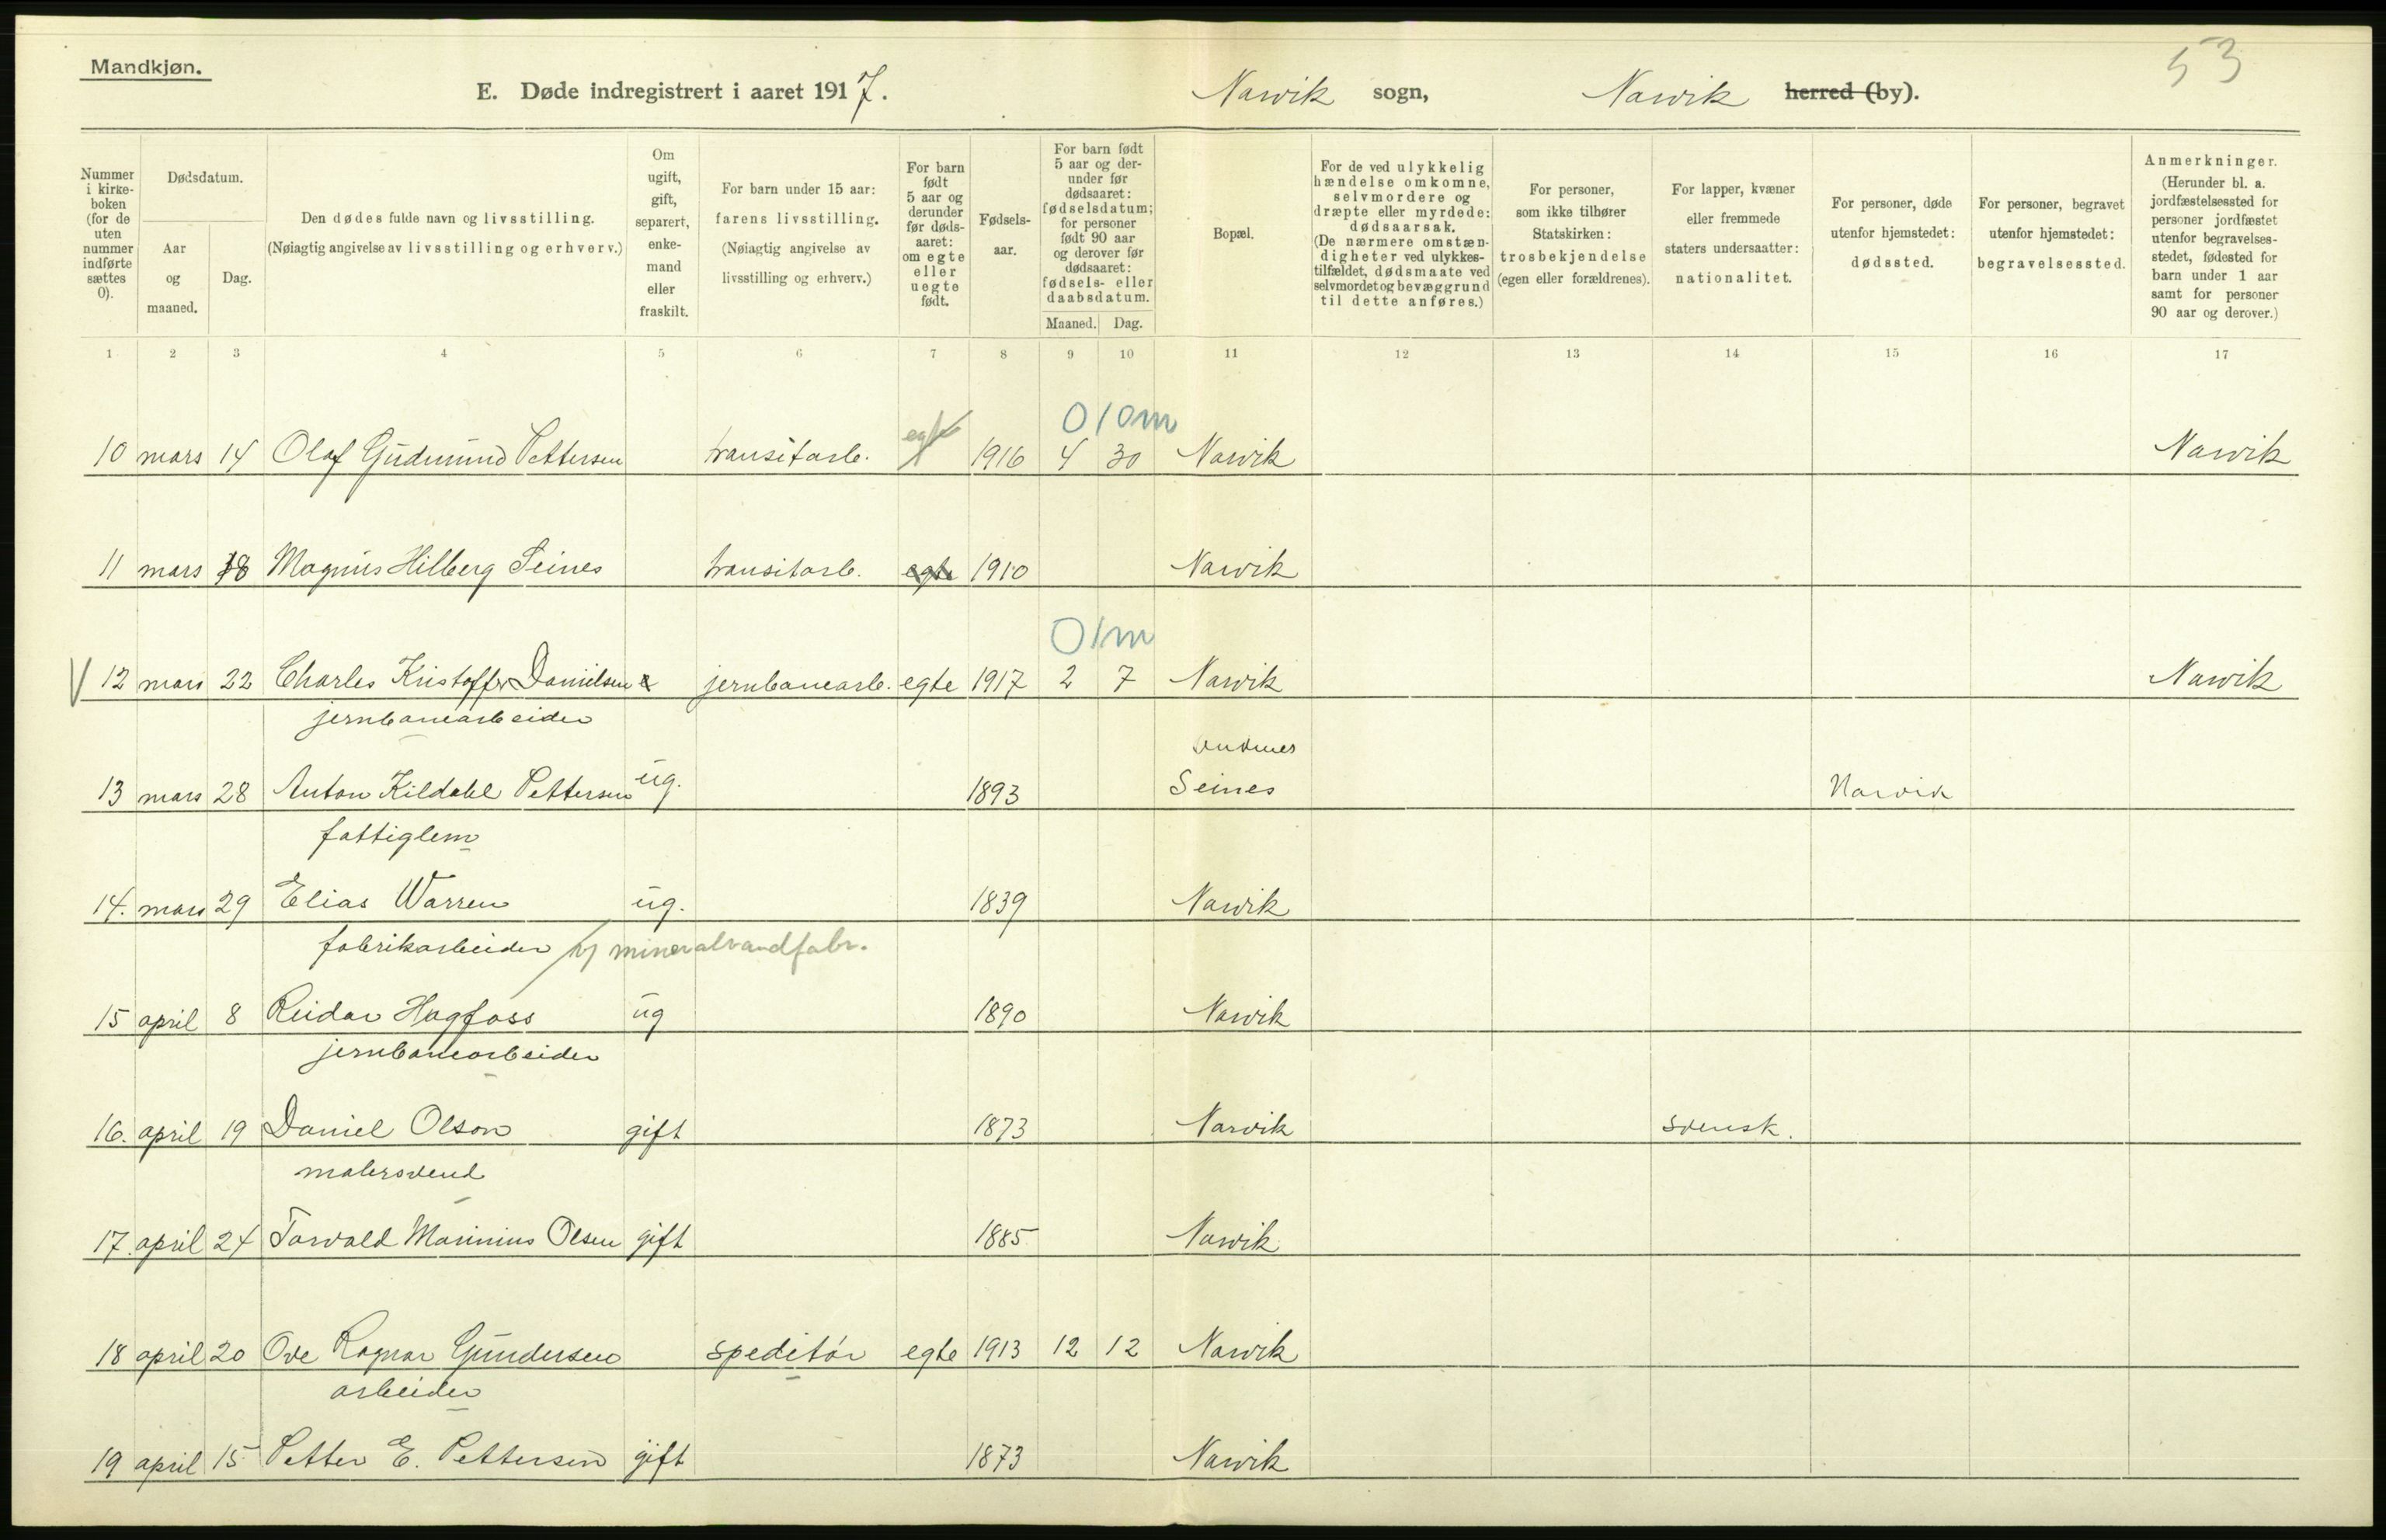 Mandkjøn.
53
E. Døde indregistrert i aaret 1917.
Narvik sogn, Narvik herred (by).
Nummer i kirke-boken (for de uten nummer indførte sættes 0).
Dødsdatum.
Aar og maaned.
Dag.
Den dødes fulde navn og livsstilling.
(Nøiagtig angivelse av livsstilling og erhverv.)
Om ugift, gift, separert, enke-mand eller fraskilt.
For barn under 15 aar: farens livsstilling.
(Nøiagtig angivelse av livsstilling og erhverv.)
For barn født 5 aar og derunder før døds-aaret: om egte eller uegte født.
Fødsels-aar.
For barn født 5 aar og der-under før dødsaaret: fødselsdatum; for personer født 90 aar og derover før dødsaaret: fødsels- eller daabsdatum.
Maaned. Dag.
Bopæl.
For de ved ulykkelig hændelse omkomne, selvmordere og dræpte eller myrdede: dødsaarsak.
(De nærmere omstæn-digheter ved ulykkes-tilfældet, dødsmaate ved selvmordet og bevæggrund til dette anføres.)
For personer, som ikke tilhører Statskirken: trosbekjendelse (egen eller forældrenes).
For lapper, kvæner eller fremmede staters undersaatter: nationalitet.
For personer, døde utenfor hjemstedet: dødssted.
For personer, begravet utenfor hjemstedet: begravelsessted.
Anmerkninger.
(Herunder bl. a. jordfæstelsessted for personer jordfæstet utenfor begravelses-stedet, fødested for barn under 1 aar samt for personer 90 aar og derover.)
1 2 3 4 5 6 7 8 9 10 11 12 13 14 15 16 17
egte 010m
10 mars 14 Olaf Gudmund Pettersen transitarb. 1916 4 30 Narvik Narvik
11 mars 18 Magnus Hilberg Seines transitarb. egte 1910 Narvik
01m
V 12 mars 22 Charles Kristoffer Danielsen jernbanearb. egte 1917 2 7 Narvik Narvik
jernbanearbeider
13 mars 28 Anton Kildahl Pettersen ug. 1893 Seines Narvik
fattiglem
14. mars 29 Elias Warren ug. 1839 Narvik
fabrikarbeider v/ mineralvandfabr.
15 april 8 Reidar Hagfoss ug 1890 Narvik
jernbanearbeider
16. april 19 Daniel Olson gift 1873 Narvik svensk.
malersvend
17. april 24 Torvald Marinius Olsen gift 1885 Narvik
18 april 20 Ove Ragnar Gundersen speditør egte 1913 12 12 Narvik
arbeider
19 april 15 Petter E. Pettersen gift 1873 Narvik